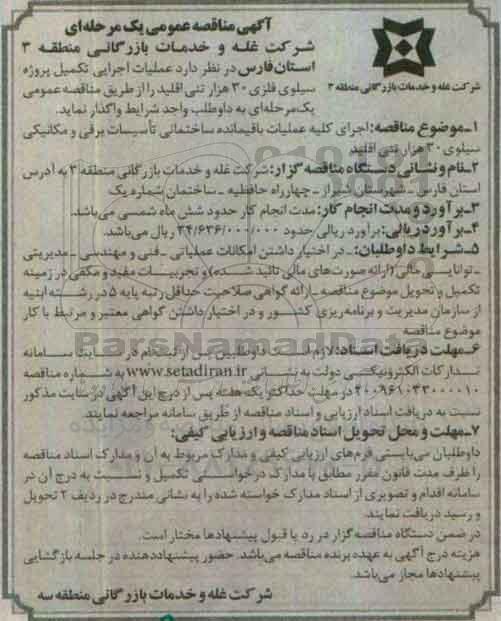 آگهی مناقصه عمومی یک مرحله‌ای
شرکت غله و خدمات بازرگانی منطقه ۳
استان فارس در نظر دارد عملیات اجرایی تکمیل پروژه
سیلوی فلزی ۳۰ هزار تنی اقلید را از طریق مناقصه عمومی
یک‌مرحله‌ای به داوطلب واجد شرایط واگذار نماید.
شرکت غله و خدمات بازرگانی منطقه ۳
۱ـ موضوع مناقصه: اجرای کلیه عملیات باقیمانده ساختمانی تأسیسات برقی و مکانیکی
سیلوی ۳۰ هزار تنی اقلید
۲ـ نام و نشانی دستگاه مناقصه گزار: شرکت غله و خدمات بازرگانی منطقه ۳ به آدرس
استان فارس ـ شهرستان شیراز ـ چهارراه حافظیه ـ ساختمان شماره یک
۳ـ برآورد و مدت انجام کار: مدت انجام کار حدود شش ماه شمسی می‌باشد.
۴ـ برآورد ریالی: برآورد ریالی حدود ۳۴/۶۳۶/۰۰۰/۰۰۰ ریال می‌باشد.
۵ـ شرایط داوطلبان: ـ در اختیار داشتن امکانات عملیاتی ـ فنی و مهندسی ـ مدیریتی
ـ توانایی مالی (ارائه صورت‌های مالی تائید شده) و تجربیات مفید و مکفی در زمینه
تکمیل و تحویل موضوع مناقصه ـ ارائه گواهی صلاحیت حداقل رتبه پایه ۵ در رشته ابنیه
از سازمان مدیریت و برنامه‌ریزی کشور و در اختیار داشتن گواهی معتبر و مرتبط با کار
موضوع مناقصه
۶ـ مهلت دریافت اسناد: لازم است داوطلبین پس از ثبت‌نام در سایت سامانه
تدارکات الکترونیکی دولت به نشانی www.setadiran.ir به شماره مناقصه
۲۰۰۹۶۱۰۳۳۰۰۰۰۱۰ در مهلت حداکثر یک هفته پس از درج این آگهی در سایت مذکور
نسبت به دریافت اسناد ارزیابی و اسناد مناقصه از طریق سامانه مراجعه نمایند.
۷ـ مهلت و محل تحویل اسناد مناقصه و ارزیابی کیفی:
داوطلبان می‌بایستی فرم‌های ارزیابی کیفی و مدارک مربوط به آن و مدارک اسناد مناقصه
را ظرف مدت قانون مقرر مطابق با مدارک درخواستی تکمیل و نسبت به درج آن در
سامانه اقدام و تصویری از اسناد مدارک خواسته شده را به نشانی مندرج در ردیف ۲ تحویل
و رسید دریافت نمایند.
در ضمن دستگاه مناقصه‌گزار در رد یا قبول پیشنهادها مختار است.
هزینه درج آگهی به عهده برنده مناقصه می‌باشد. حضور پیشنهاددهنده در جلسه بازگشایی
پیشنهادها مجاز می‌باشد.
شرکت غله و خدمات بازرگانی منطقه سه
ParsNamadData